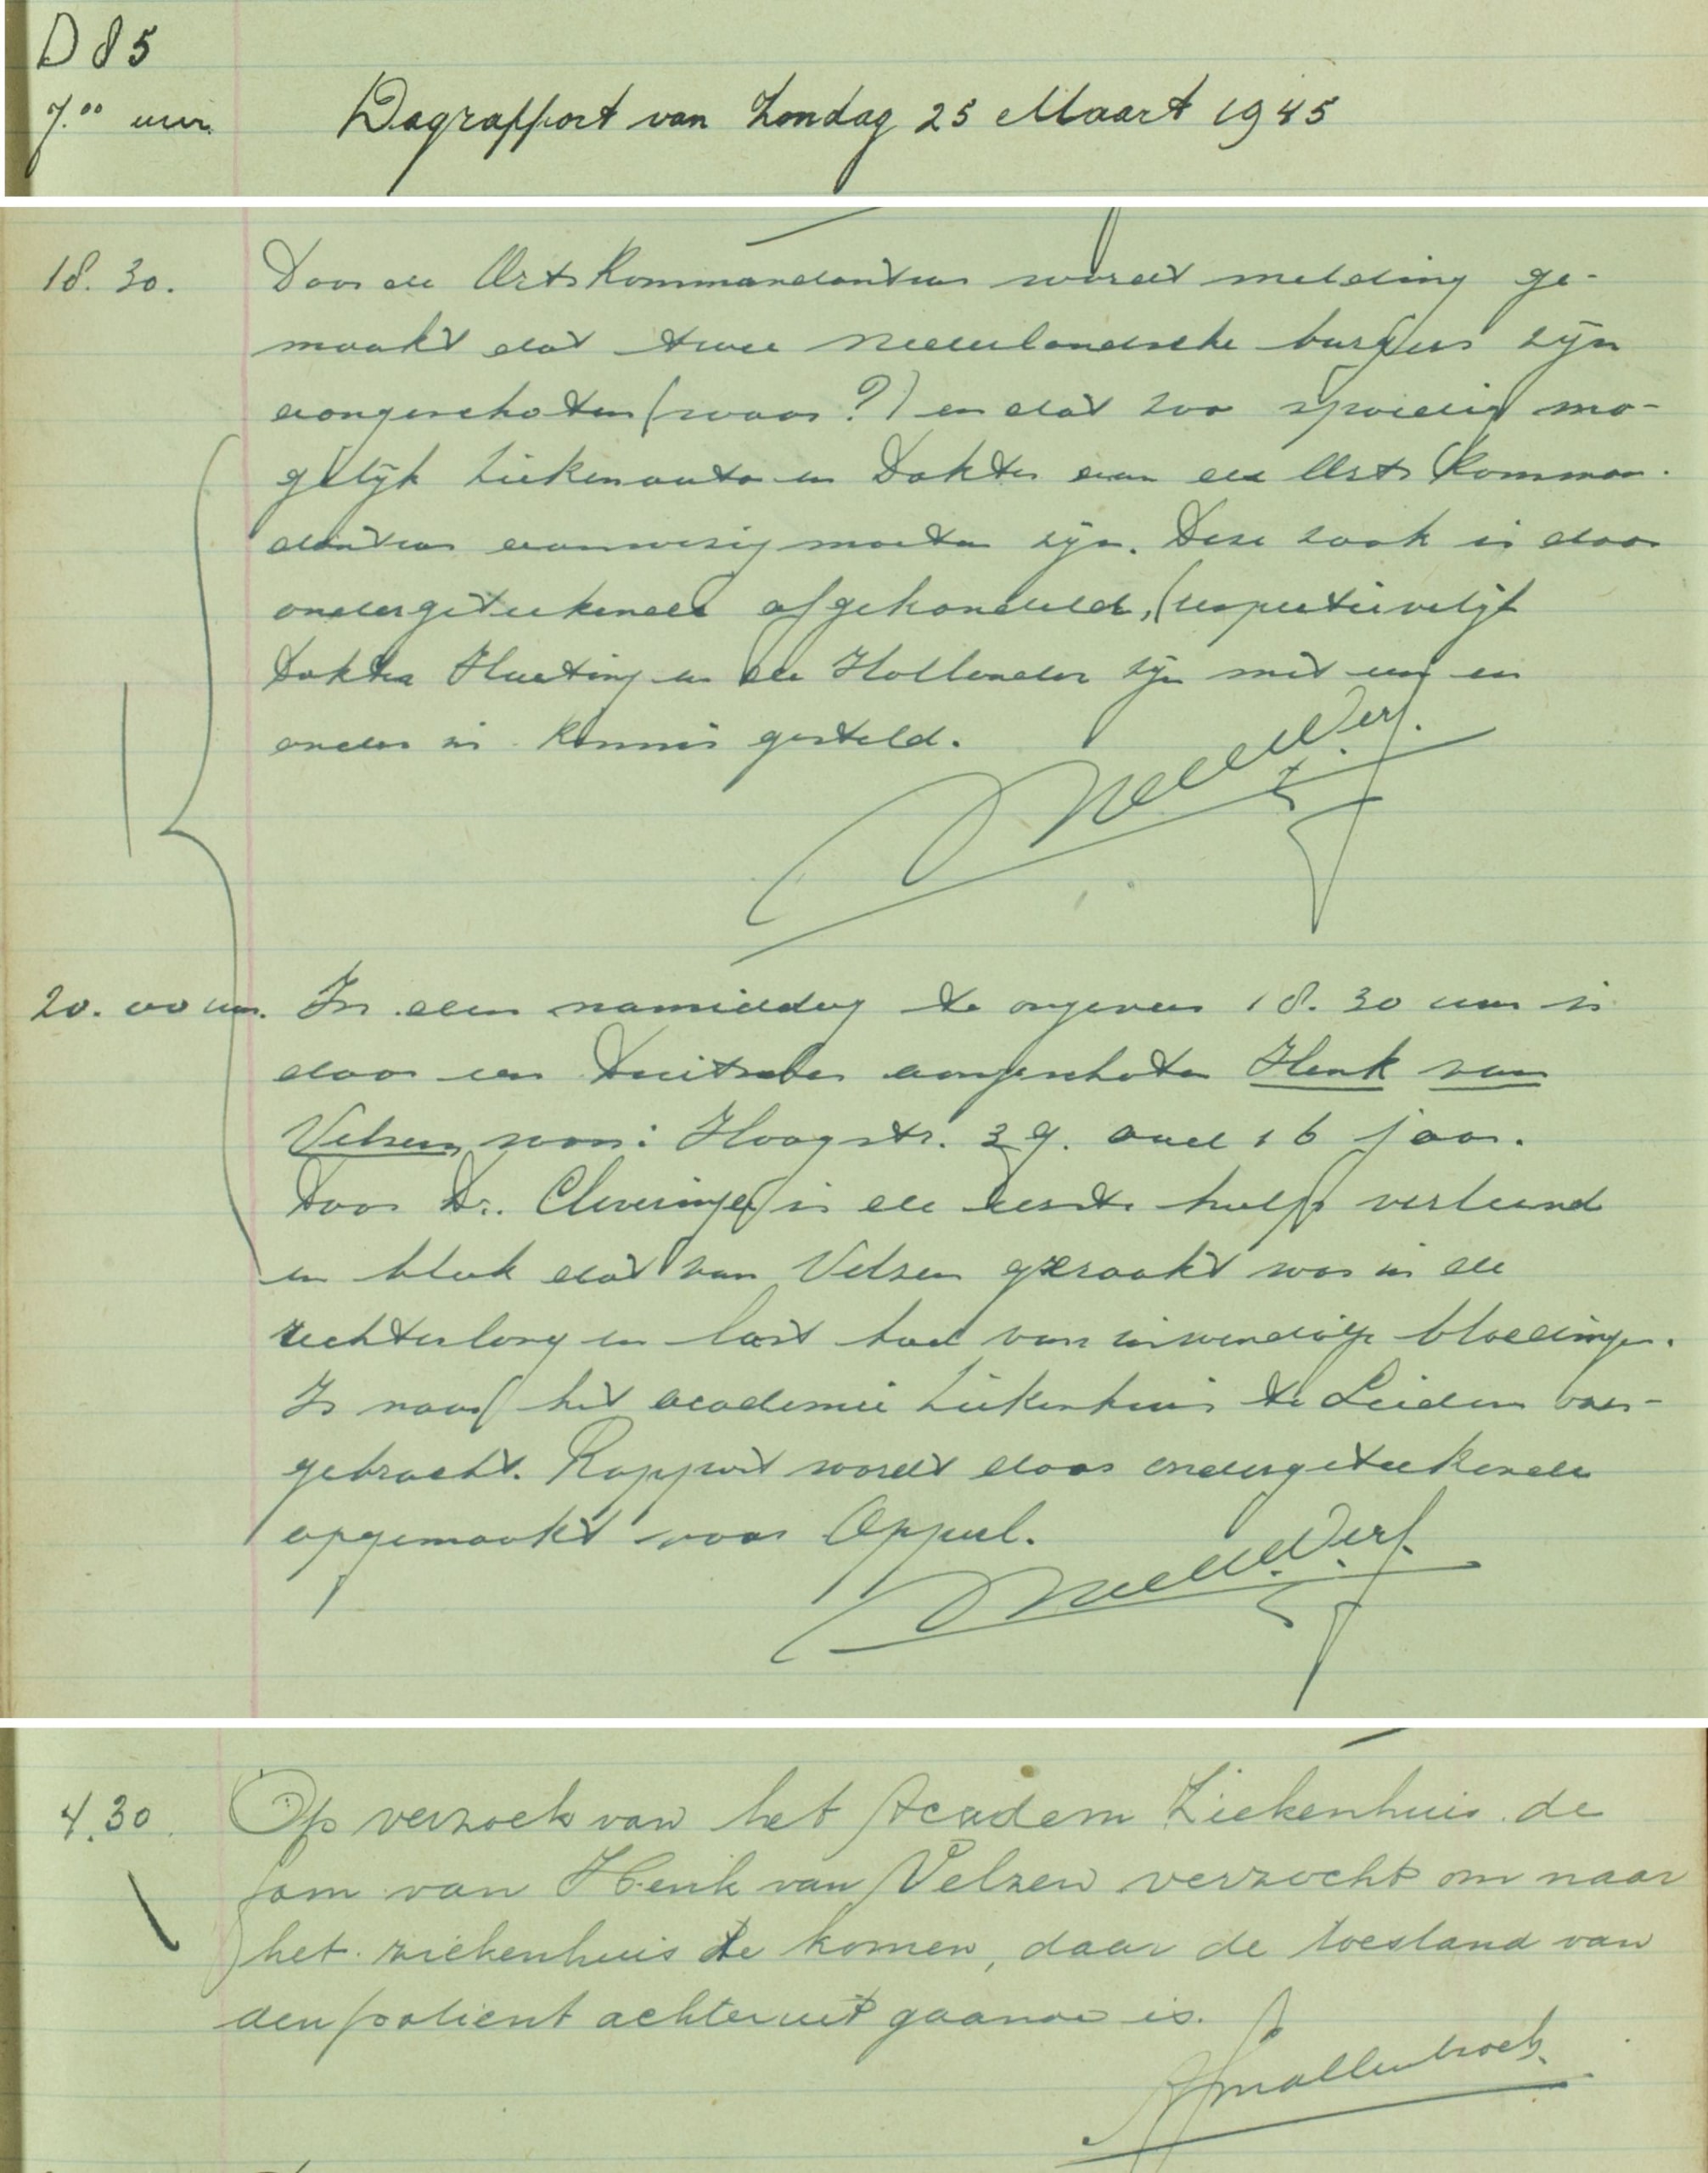 D 85
7.00 uur Dagrapport van Zondag 25 Maart 1945
18.30. Door de Ortskommandantur wordt melding ge-
maakt dat twee Nederlandsche burgers zijn
aangeschoten (waar?) en dat zoo spoedig mo-
gelijk ziekenauto en Dokter aan de Orts Komman-
dantur aanwezig moeten zijn. Deze zaak is door
ondergeteekende afgehandeld, (respectievelijk
Dokter Hueting en de Hollander zijn met een en
ander in kennis gesteld.
v.d. Werf.
20.00 uur. In den namiddag te ongeveer 18.30 uur is
door een Duitscher aangeschoten Henk van
Velzen, won: Hoogstr. 39. oud 16 jaar.
Door Dr. Cleveringa is de eerste hulp verleend
en bleek dat van Velzen geraakt was in de
rechterlong en last had van inwendige bloedingen.
Is naar het academie ziekenhuis te Leiden over-
gebracht. Rapport wordt door ondergeteekende
opgemaakt voor Opperl.
v.d. Werf.
4.30. Op verzoek van het Academ Ziekenhuis de
fam van Henk van Velzen verzocht om naar
het ziekenhuis te komen, daar de toestand van
den patient achteruit gaande is.
Smallenbroek